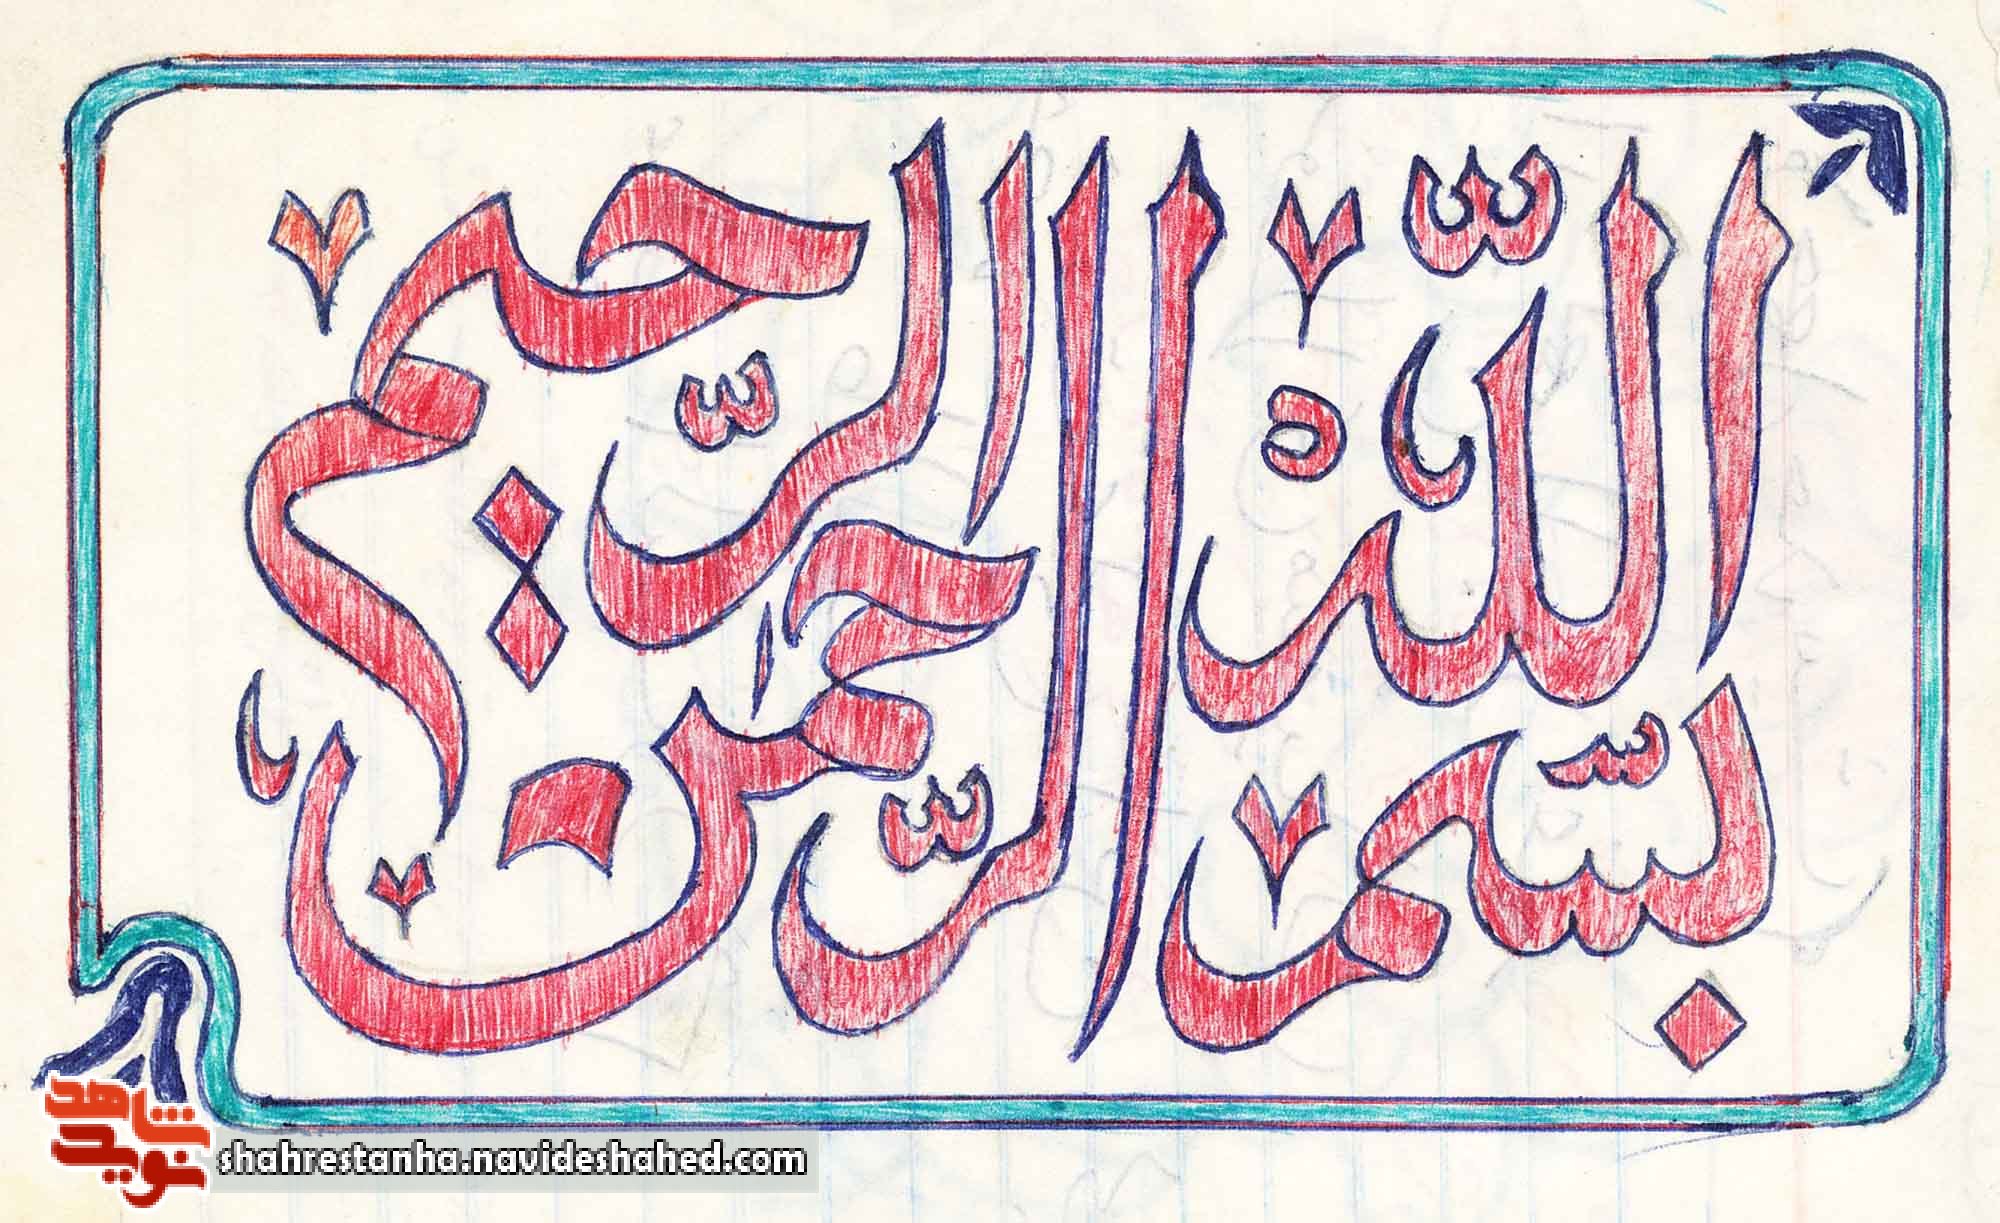 بسم الله الرحمن الرحیم
نوید شاهد
shahrestanha.navideshahed.com